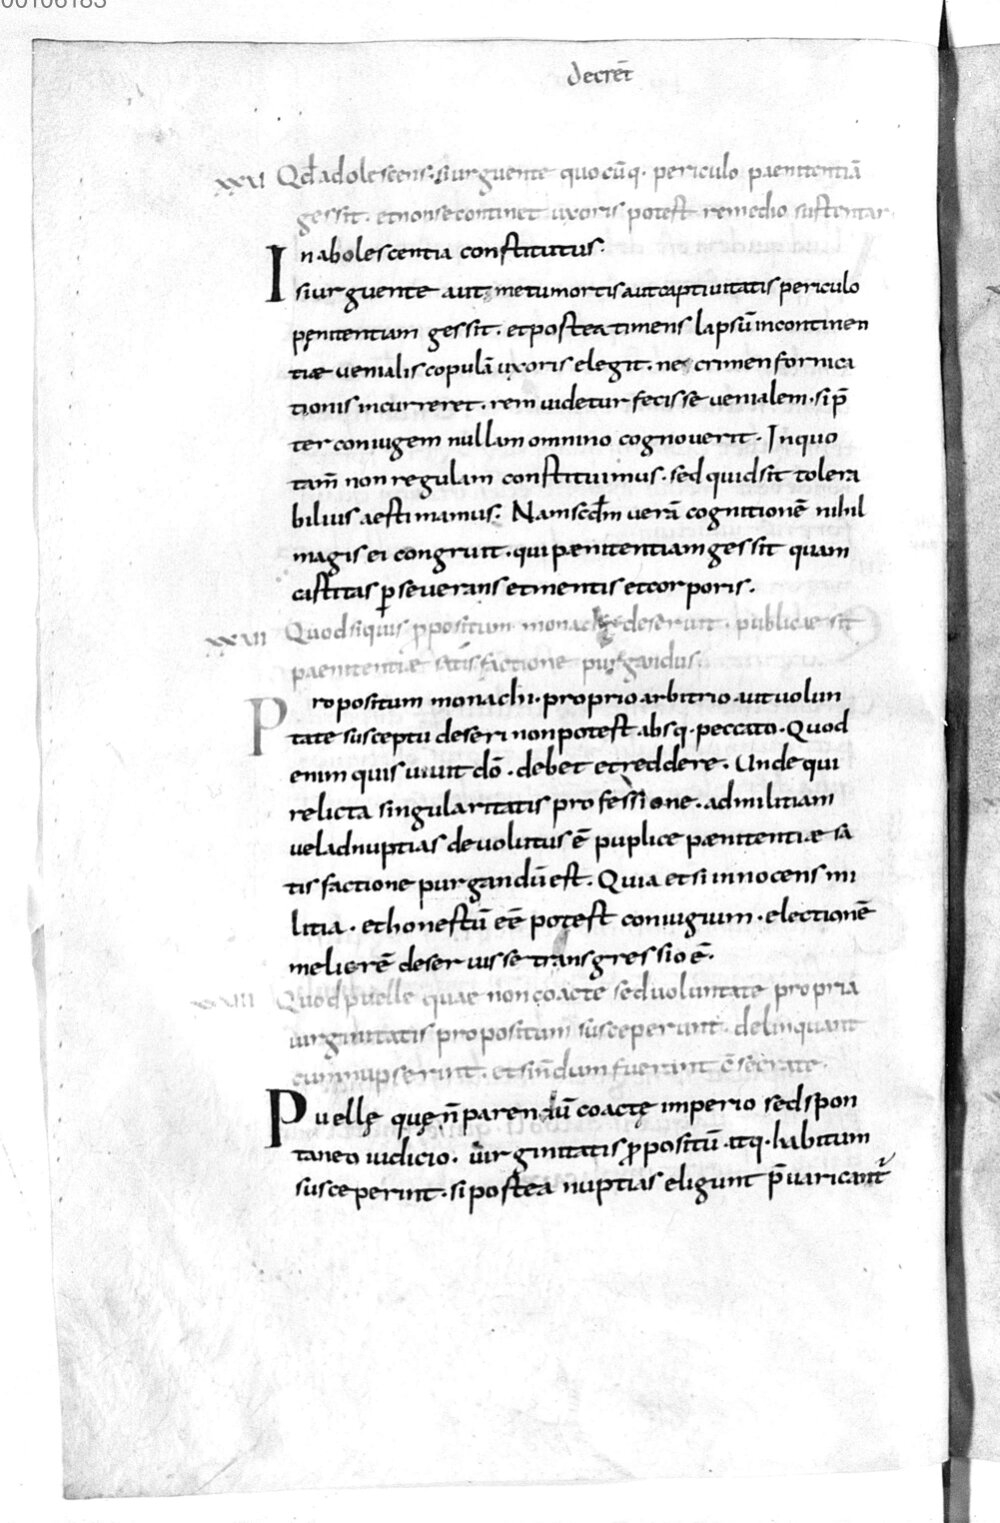 00106183
decret̄
XXXI Qd̄ adolescens si urguente quocūq· periculo paenitentiā
gessit· et non se continet uxoris potest remedio sustentari
In adolescentia constitutus·
si urguente aut metu mortis aut captiuitatis periculo
pęnitentiam gessit· et postea timens lapsū incontinen
tiae uenialis copulā uxoris elegit· ne crimen fornica
tionis incurreret· rem uidetur fecisse uenialem· si p̄
ter coniugem nullam omnino cognouerit· In quo
tam̄ non regulam constituimus· sed quid sit tolera
bilius aestimamus· Nam scd̄m uerā cognitionē nihil
magis ei congruit· qui paenitentiam gessit quam
castitas ꝑseuerans et mentis et corporis·
XXXII Quod siquis ꝓpositum monachi deserunt· publicae sit
paenitentiae satisfactione purgandus·
Propositum monachi· proprio arbitrio aut uolun
tate susceptū deseri non potest absq· peccato· Quod
enim quis uouit dō· debet et reddere· Unde qui
relicta singularitatis professione· ad militiam
uel ad nuptias deuolutus ē puplice paenitentiae sa
tisfactione purgandū est· Quia etsi innocens mi
litia· et honestū eē potest coniugium· electionē
meliorē deseruisse transgressio ē·
XXXIII Quod puelle quae non coacte sed uoluntate propria
uirginitatis propositum susceperunt· delinquant
cum nupserint· etsi nondum fuerint c̄secrate·
Puellę quę n̄ parentū coactę imperio sed spon
taneo iudicio· uirginitatis ꝓpositū atq· habitum
susceperint· si postea nuptias eligunt p̄uaricant᷑